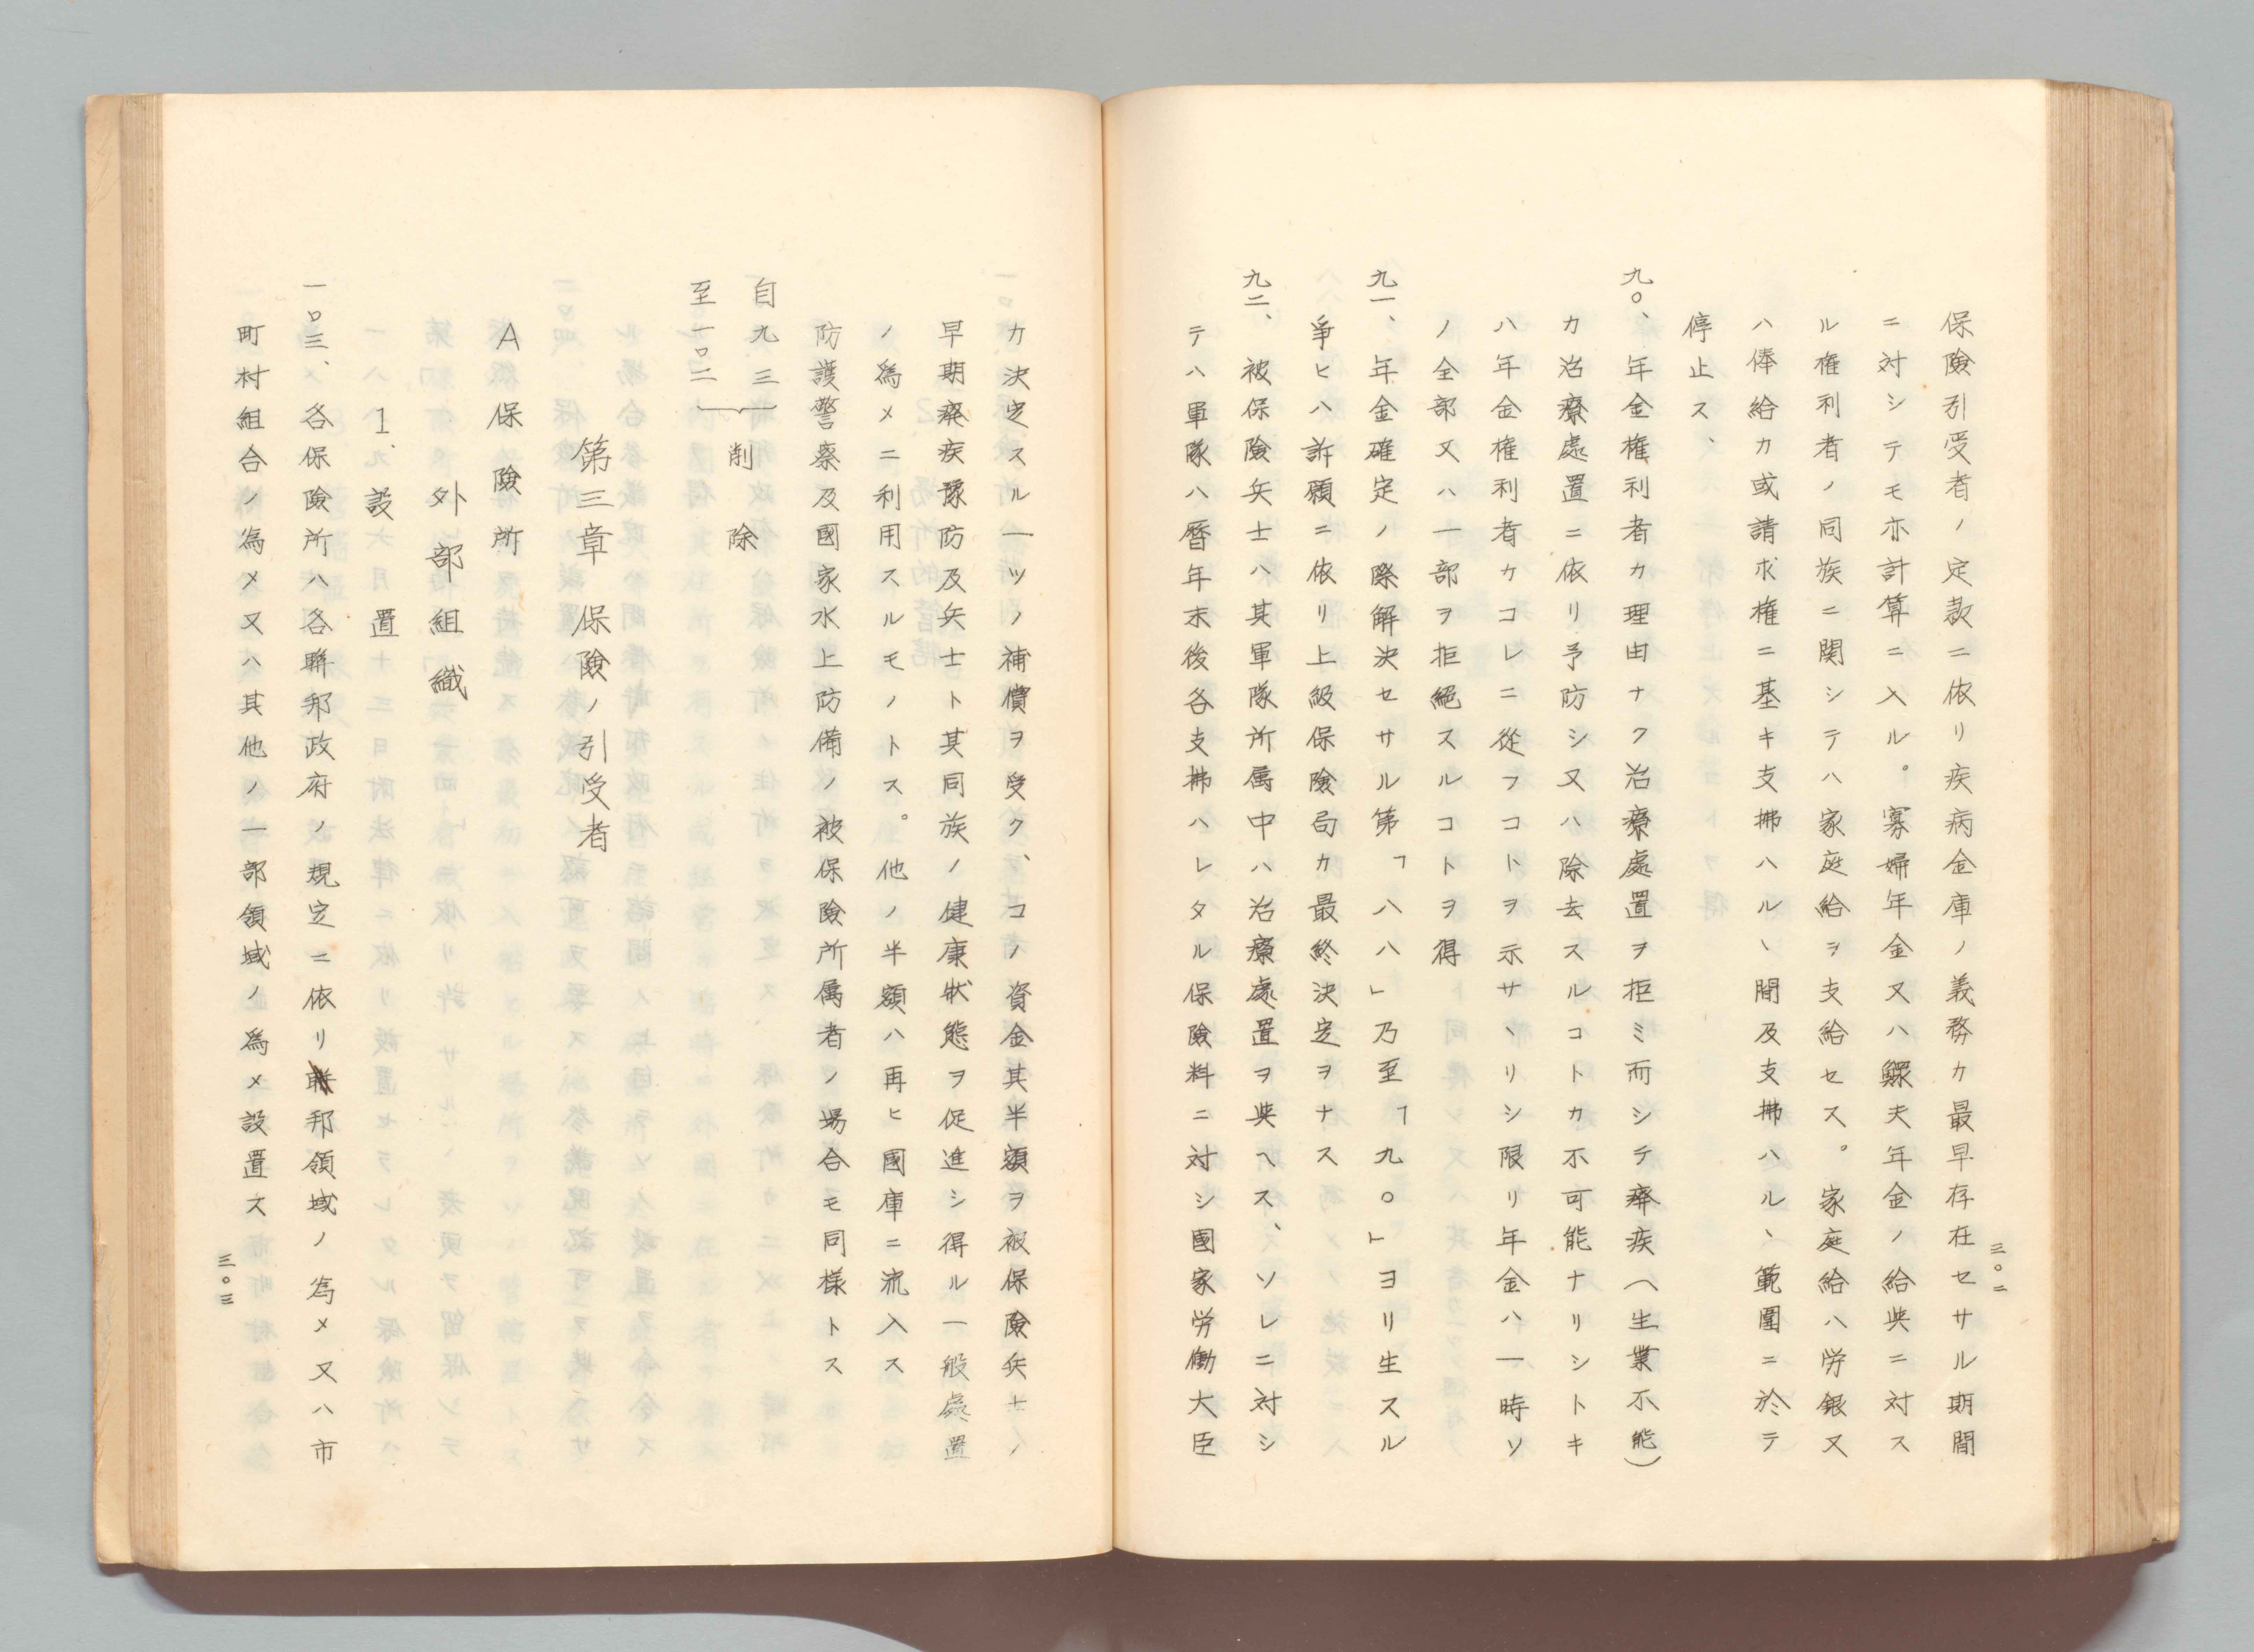 三〇二
保險引受者ノ定款ニ依リ疾病金庫ノ義務カ最早存在セサル期間
ニ対シテモ亦計算ニ入ル。寡婦年金又ハ鰥夫年金ノ給與ニ対ス
ル権利者ノ同族ニ関シテハ家庭給ヲ支給セス。家庭給ハ労銀又
ハ俸給カ或請求権ニ基キ支拂ハルヽ間及支拂ハルヽ範圍ニ於テ
停止ス、
九〇、年金権利者カ理由ナク治療處置ヲ拒ミ而シテ癈疾(生業不能)
カ治療處置ニ依リ予防シ又ハ除去スルコトカ不可能ナリシトキ
ハ年金権利者カコレニ從フコトヲ示サヽリシ限リ年金ハ一時ソ
ノ全部又ハ一部ヲ拒絕スルコトヲ得
九一、年金確定ノ際解決セサル第「八八」乃至「九〇」ヨリ生スル
爭ヒハ訴願ニ依リ上級保險局カ最終決定ヲナス
九二、被保險兵士ハ其軍隊所属中ハ治療處置ヲ與ヘス、ソレニ対シ
テハ軍隊ハ曆年末後各支拂ハレタル保險料ニ対シ國家労働大臣
カ決定スル一ツノ補償ヲ受ク、コノ資金其半額ヲ被保險兵士ノ
早期癈疾豫防及兵士ト其同族ノ健康狀態ヲ促進シ得ル一般處置
ノ為メニ利用スルモノトス。他ノ半額ハ再ヒ國庫ニ流入ス
防護警察及國家水上防備ノ被保險所属者ノ場合モ同様トス
自九三
至一〇二
削除
第三章 保險ノ引受者
A保險所
外部組織
1、設置
一〇三、各保險所ハ各聯邦政府ノ規定ニ依リ聯邦領域ノ為メ又ハ市
町村組合ノ為メ又ハ其他ノ一部領域ノ為メ設置ス
三〇三